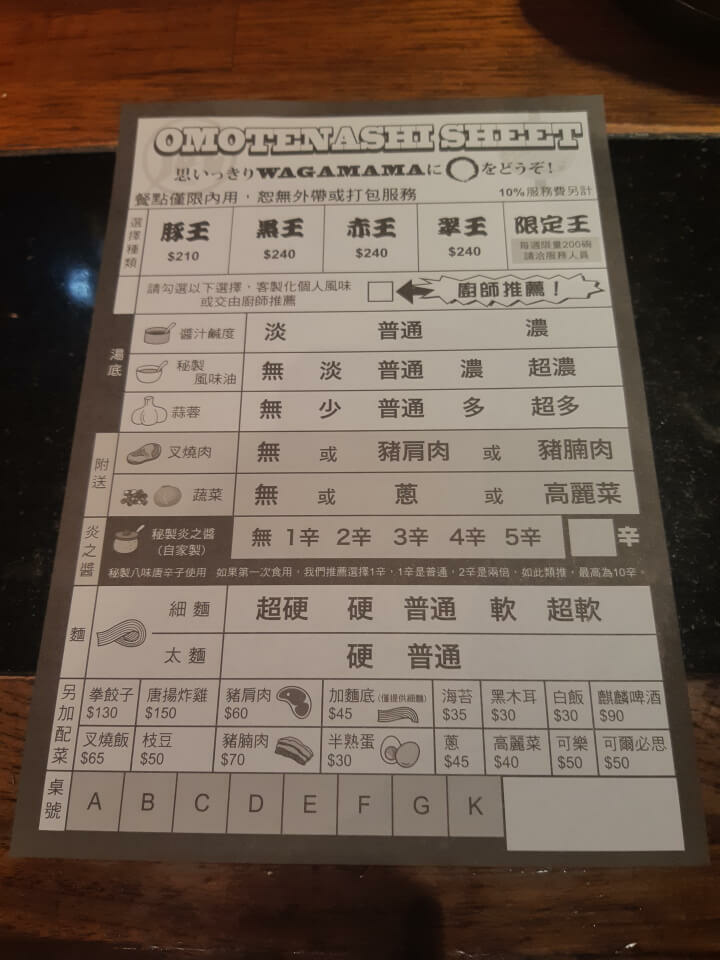 OMOTENASHI SHEET
思いっきりWAGAMAMAに◯をどうぞ!
餐點僅限內用,恕無外帶或打包服務 10%服務費另計
選擇種類 豚王 黒王 赤王 翠王 限定王
$210 $240 $240 $240 每週限量200碗 請洽服務人員
請勾選以下選擇、客製化個人風味
或交由廚師推薦 廚師推薦!
湯底
醬汁鹹度 淡 普通 濃
秘製風味油 無 淡 普通 濃 超濃
蒜蓉 無 少 普通 多 超多
附送
叉燒肉 無 或 豬肩肉 或 豬腩肉
蔬菜 無 或 蔥 或 高麗菜
炎之醬
秘製炎之醬(自家製) 無 1辛 2辛 3辛 4辛 5辛 辛
秘製八味唐辛子使用 如果第一次食用,我們推薦選擇1辛,1辛是普通,2辛是兩倍,如此類推,最高為10辛。
麵
細麵 超硬 硬 普通 軟 超軟
太麵 硬 普通
另加配菜
拳餃子 唐揚炸雞 豬肩肉 加麵底(僅提供細麵) 海苔 黑木耳 白飯 麒麟啤酒
$130 $150 $60 $45 $35 $30 $30 $90
叉燒飯 枝豆 豬腩肉 半熟蛋 蔥 高麗菜 可樂 可爾必思
$65 $50 $70 $30 $45 $40 $50 $50
桌號 A B C D E F G K